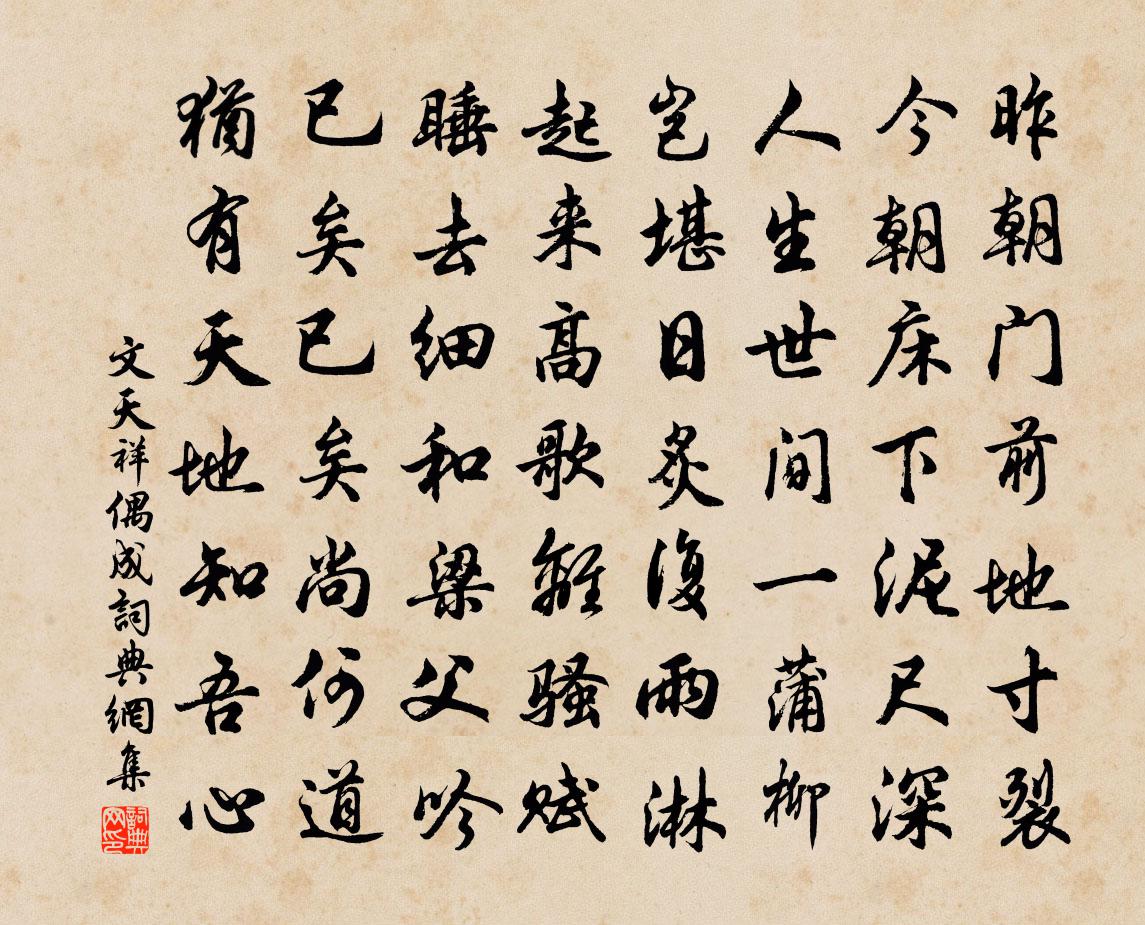 昨朝门前地寸裂
今朝床下泥尺深
人生世间一蒲柳
岂堪日炙復雨淋
起来高歌離骚赋
睡去细和梁父吟
已矣已矣尚何道
猶有天地知吾心
文天祥偶成詞典網集
詞典网印